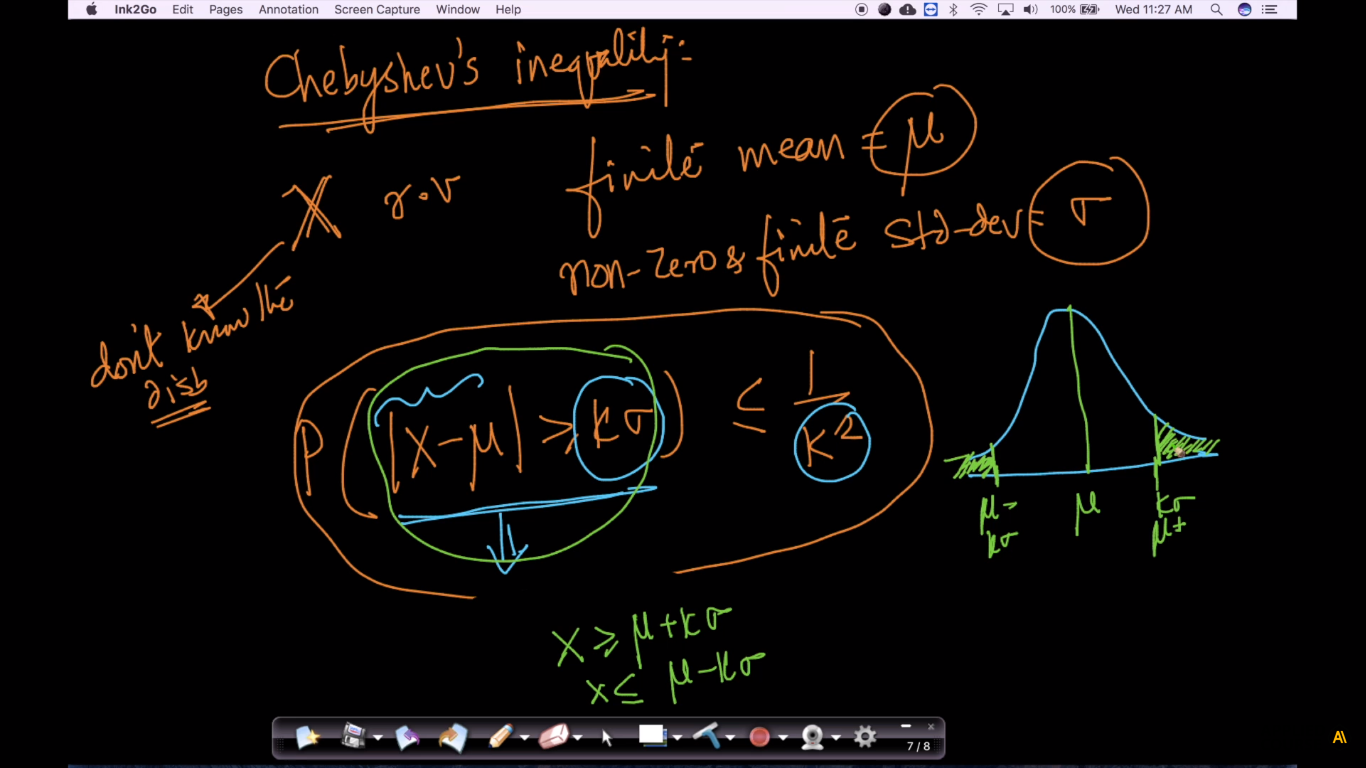 Ink2Go Edit Pages Annotation Screen Capture Window Help 100% Wed 11:27 AM
Chebyshev's inequality:
X r.v finite mean = μ
non-zero & finite std-dev = σ
don't know the
P(|X-μ| ≥ kσ) ≤ 1/k²
μ-
kσ
μ
kσ
μ+
X ≥ μ+kσ
x ≤ μ-kσ
7 / 8